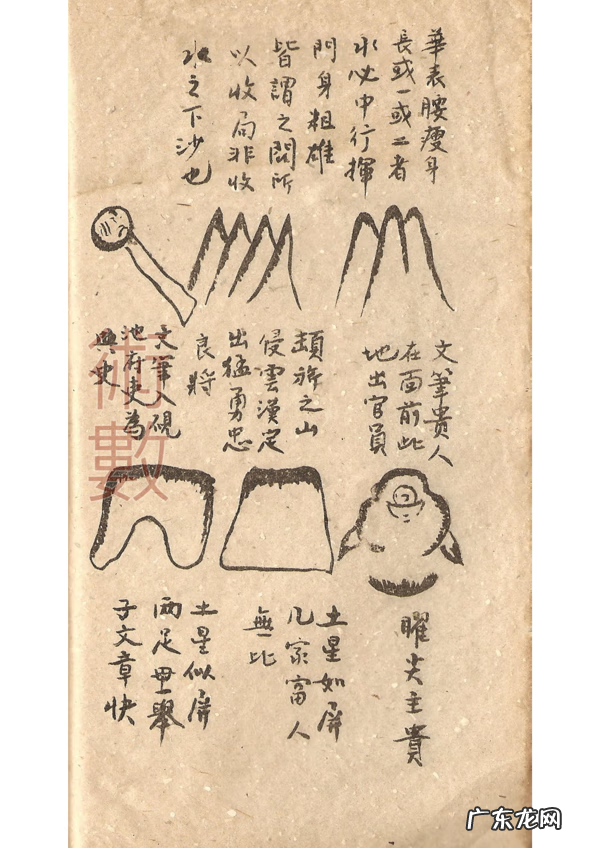 華表腰瘦身
長或一或二者
水必中行揮
門身粗雄
皆謂之閱所
以收局非收
水之下沙也
文筆貴人
在面前此
地出官員
頡旂之山
侵雲漢定
出猛勇忠
良將
文筆入硯
池府吏為
典史
曜尖主貴
土星如屏
几家富人
無比
土星似屏
兩足垂舉
子文章快
術數
广东龙网